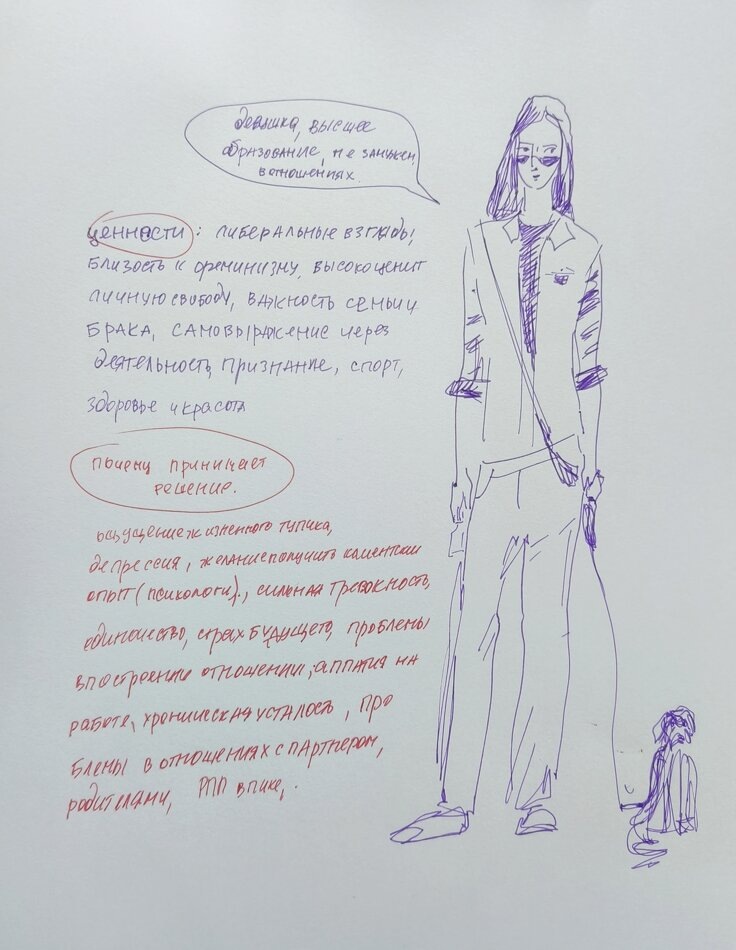 девушка, высшее
образование, не замужем,
в отношениях.
ценности: либеральные взгляды,
близость к феминизму, высоко ценит
личную свободу, важность семьи и
брака, самовыражение через
деятельность, признание, спорт,
здоровье и красота
почему принимает
решение.
ощущение жизненного тупика,
депрессия, желание получить клиентский
опыт (психологи)., сильная тревожность,
одиночество, страх будущего, проблемы
в построении отношений, аппатия на
работе, хроническая усталость, про
блемы в отношениях с партнером,
родителями, РПП в пике,.